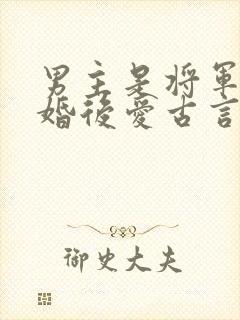 男主是将軍
婚後愛古言
御史大夫